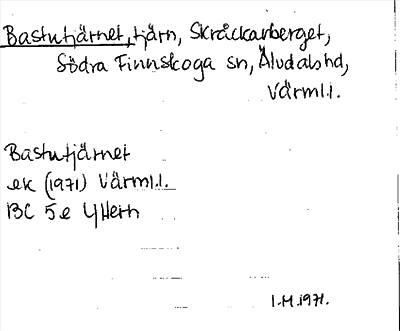 Bastutjärnet, tjärn, Skråckarberget,
Södra Finnskoga sn, Älvdals hd,
Värml.l.
Bastutjärnet
ek (1971) Värml.l.
BC 5e Ytterh
I.M. 1971.